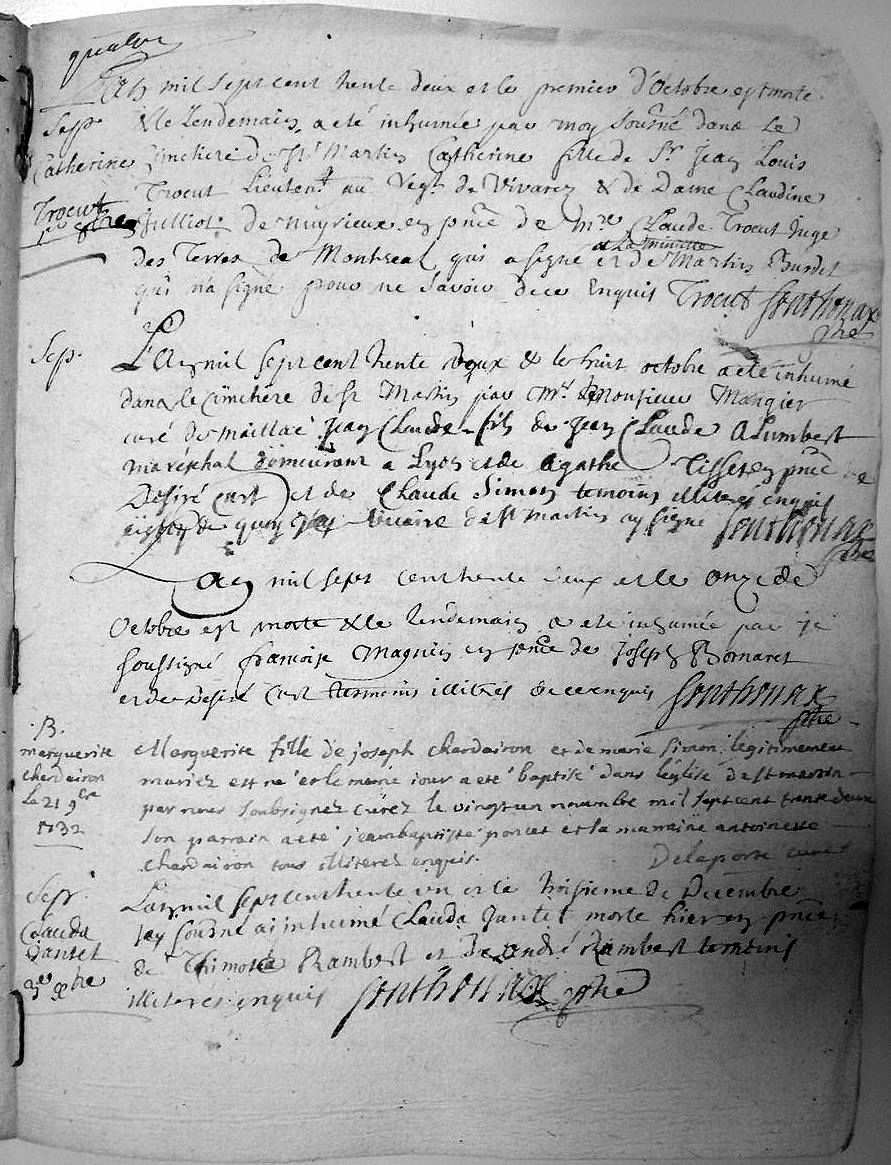 L'an mil sept cent trente deux et le premier d'Octobre est morte
Sepre & le Lendemain a eté inhumée par moy soussné dans Le
Catherine Cimetiere de St Martin Catherine fille de Sr Jean Louis
Trocut Trocut Lieutent au Regt de Vivarez & de Dame Claudine
Julliot de nuyrieux en pnce de mre Claude Trocut Juge
a La minutte
des Terres de Montreal qui a signé et de Martin Burdet
qui na signé pour ne savoir de ce Enquis Trocut Sonthonax
ptre
Sep. L'an mil sept cent trente deux & le huit octobre a eté inhumé
dans le Cimetiere de St Martin par Mr Monsieur Mangier
curé de maillac Jean Claude fils de Jean Claude Alumbert
maréchal demeurant a Lyon et de Agathe Tisseren pnce de
Desiré Curt et de Claude Simon temoins illiteres enquis
de quoy vicaire de St martin ay signé Sonthonax
ptre
Lan mil sept cent trente deux et le onze de
Octobre est morte & le lendemain a eté inhumée par je
soussigné francoise Magnin en pnce de Joseph Bornaret
et de Desiré Curt termoins illitres de ce enquis Sonthonax
ptre
B.
marguerite Marguerite fille de joseph chardairon et de marie Simon legitimement
chardairon mariez est né et le meme iour a eté baptisé dans léglise de st martin
Le 21 9bre par nous soubsignez curez le vingt un novembre mil sept cent trente deux
1732 son parrain a eté jean baptiste poncet et la marraine antoinette
chardairon tous illiterez enquis. Delaporte curé
Sepr. L'an mil sept cent trente un et le troisieme de Decembre
Clauda Jay soussné ai inhumé Clauda Jantet morte hier en pnce
Jantet de Thimotée Rambert et de André Rambert temoins
3e xbre illiteres enquis Sonthonax ptre